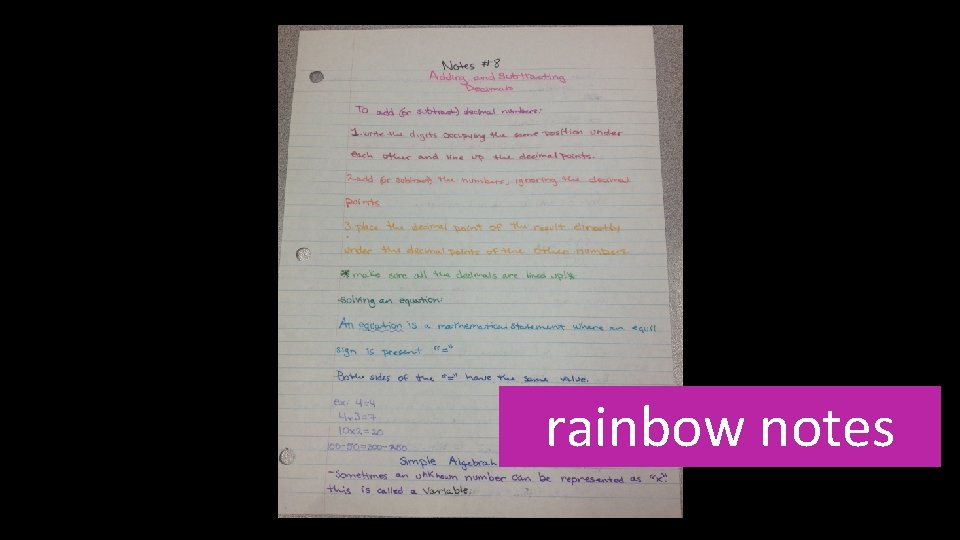 Notes #8
Adding and Subtracting
Decimals
To add (or subtract) decimal numbers:
1. write the digits occupying the same position under
each other and line up the decimal points.
2. add (or subtract) the numbers, ignoring the decimal
points
3. place the decimal point of the result directly
under the decimal points of the other numbers
*make sure all the decimals are lined up!*
-Solving an equation:
An equation is a mathematical statement where an equil
sign is present "="
Both sides of the "=" have the same value.
ex. 4=4
4+3=7
10x2=20
Simple Algebrah
-Sometimes an unknown number can be represented as "x".
this is called a variable.
rainbow notes